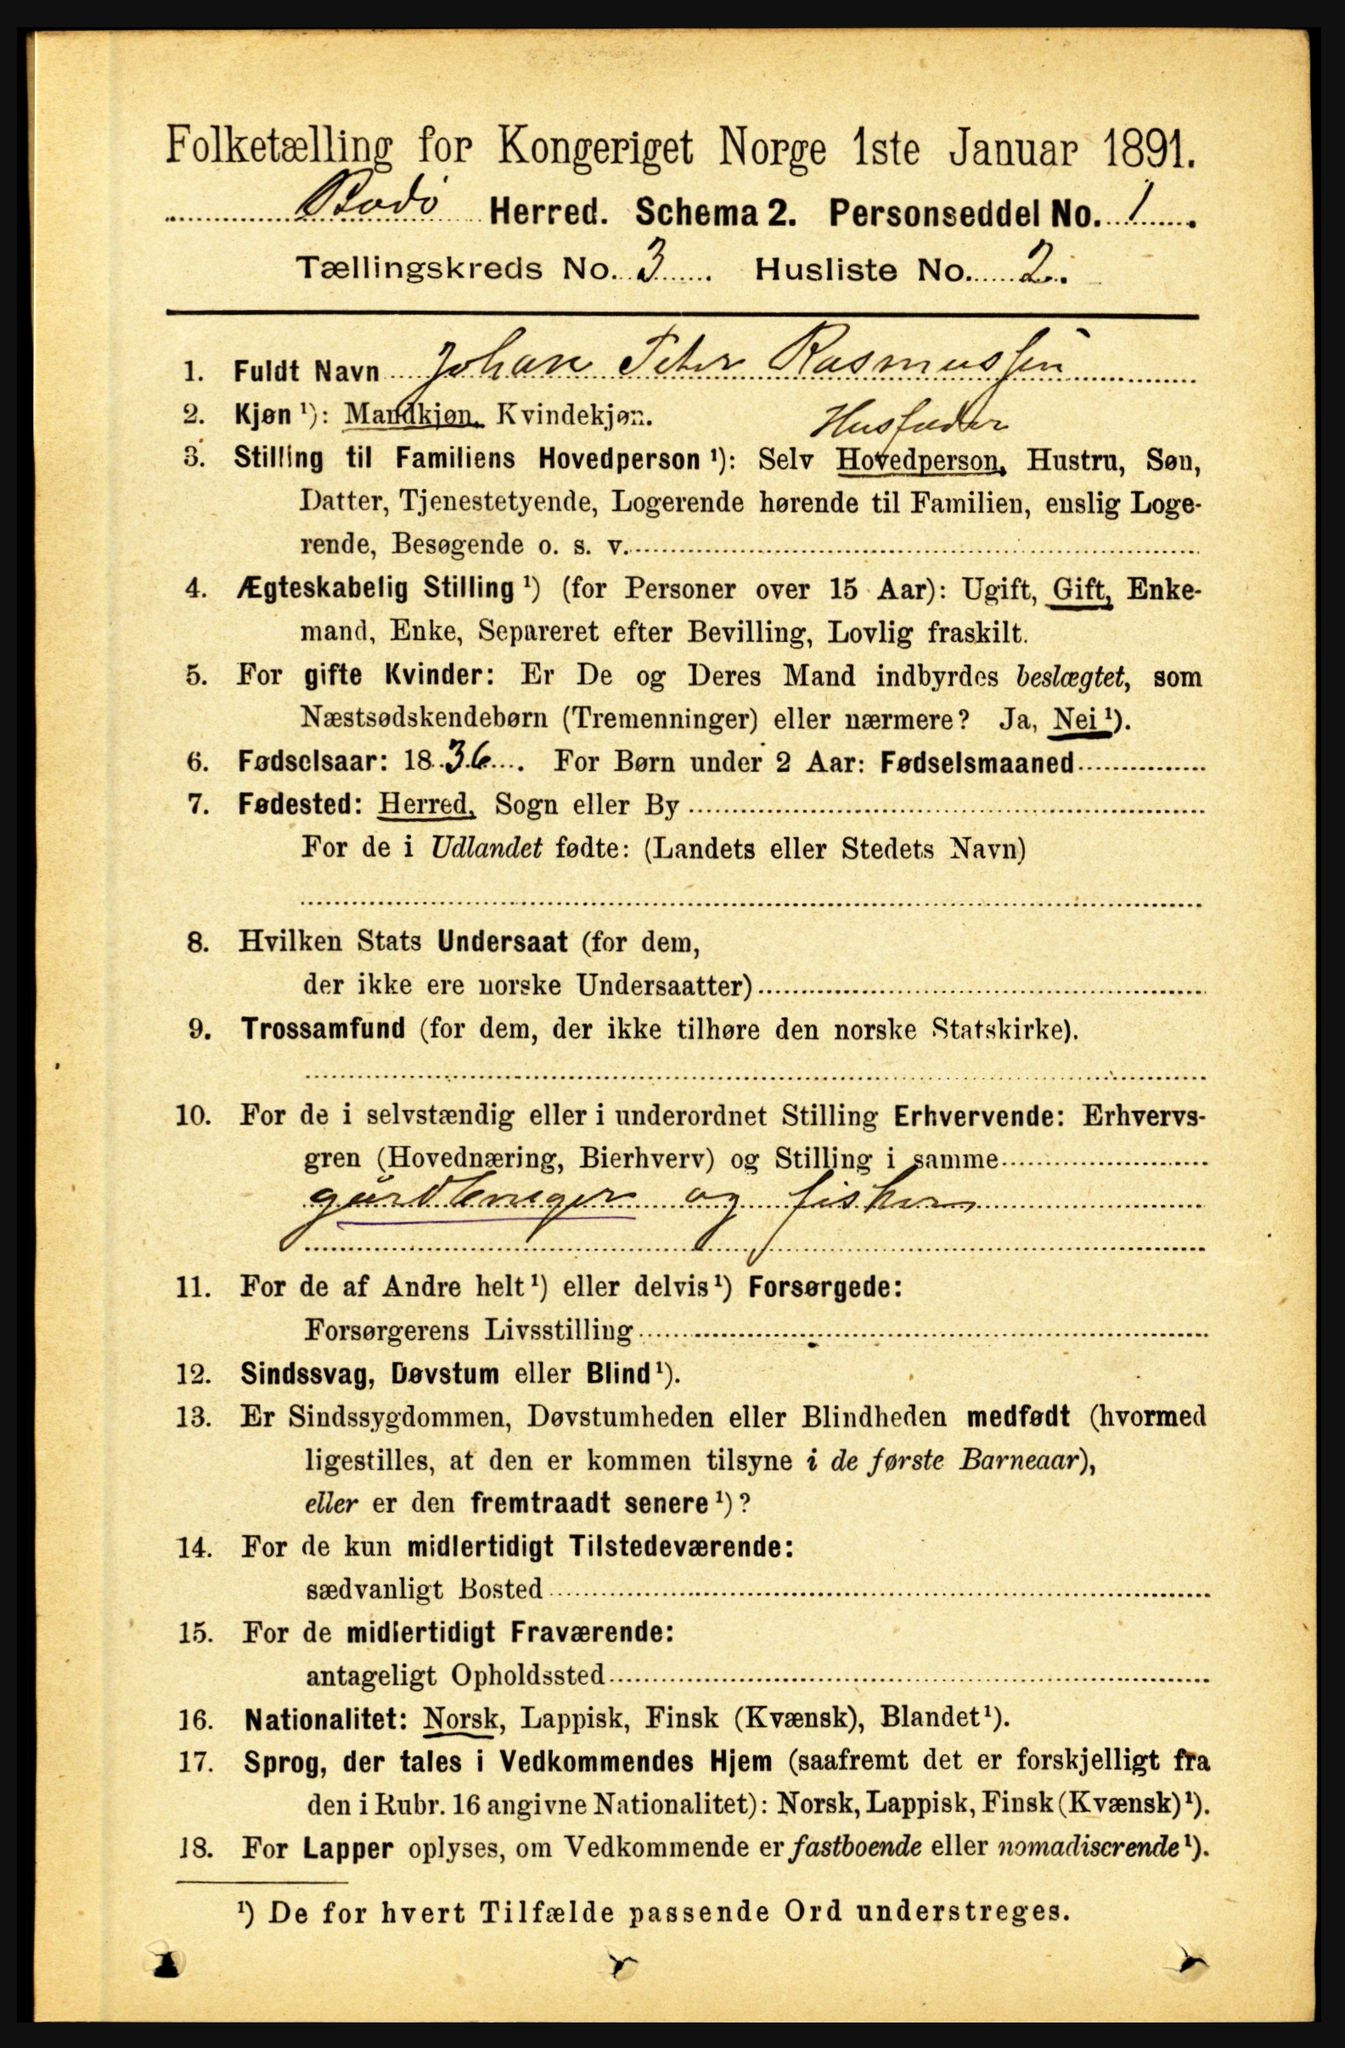 Folketælling for Kongeriget Norge 1ste Januar 1891.
Bodø Herred. Schema 2. Personseddel No. 1.
Tællingskreds No. 3. Husliste No. 2.
1. Fuldt Navn Johan Peter Rasmussen
2. Kjøn ¹): Mandkjøn, Kvindekjøn. Husfader
3. Stilling til Familiens Hovedperson ¹): Selv Hovedperson, Hustru, Søn,
Datter, Tjenestetyende, Logerende hørende til Familien, enslig Loge-
rende, Besøgende o. s. v.
4. Ægteskabelig Stilling ¹) (for Personer over 15 Aar): Ugift, Gift, Enke-
mand, Enke, Separeret efter Bevilling, Lovlig fraskilt.
5. For gifte Kvinder: Er De og Deres Mand indbyrdes beslægtet, som
Næstsødskendebørn (Tremenninger) eller nærmere? Ja, Nei ¹).
6. Fødselsaar: 1836. For Børn under 2 Aar: Fødselsmaaned
7. Fødested: Herred, Sogn eller By
For de i Udlandet fødte: (Landets eller Stedets Navn)
8. Hvilken Stats Undersaat (for dem,
der ikke ere norske Undersaatter)
9. Trossamfund (for dem, der ikke tilhøre den norske Statskirke).
10. For de i selvstændig eller i underordnet Stilling Erhvervende: Erhvervs-
gren (Hovednæring, Bierhverv) og Stilling i samme
gårdbruger og fisker
11. For de af Andre helt ¹) eller delvis ¹) Forsørgede:
Forsørgerens Livsstilling
12. Sindssvag, Døvstum eller Blind ¹).
13. Er Sindssygdommen, Døvstumheden eller Blindheden medfødt (hvormed
ligestilles, at den er kommen tilsyne i de første Barneaar),
eller er den fremtraadt senere ¹)?
14. For de kun midlertidigt Tilstedeværende:
sædvanligt Bosted
15. For de midlertidigt Fraværende:
antageligt Opholdssted
16. Nationalitet: Norsk, Lappisk, Finsk (Kvænsk), Blandet ¹).
17. Sprog, der tales i Vedkommendes Hjem (saafremt det er forskjelligt fra
den i Rubr. 16 angivne Nationalitet): Norsk, Lappisk, Finsk (Kvænsk) ¹).
18. For Lapper oplyses, om Vedkommende er fastboende eller nomadiserende ¹).
¹) De for hvert Tilfælde passende Ord understreges.